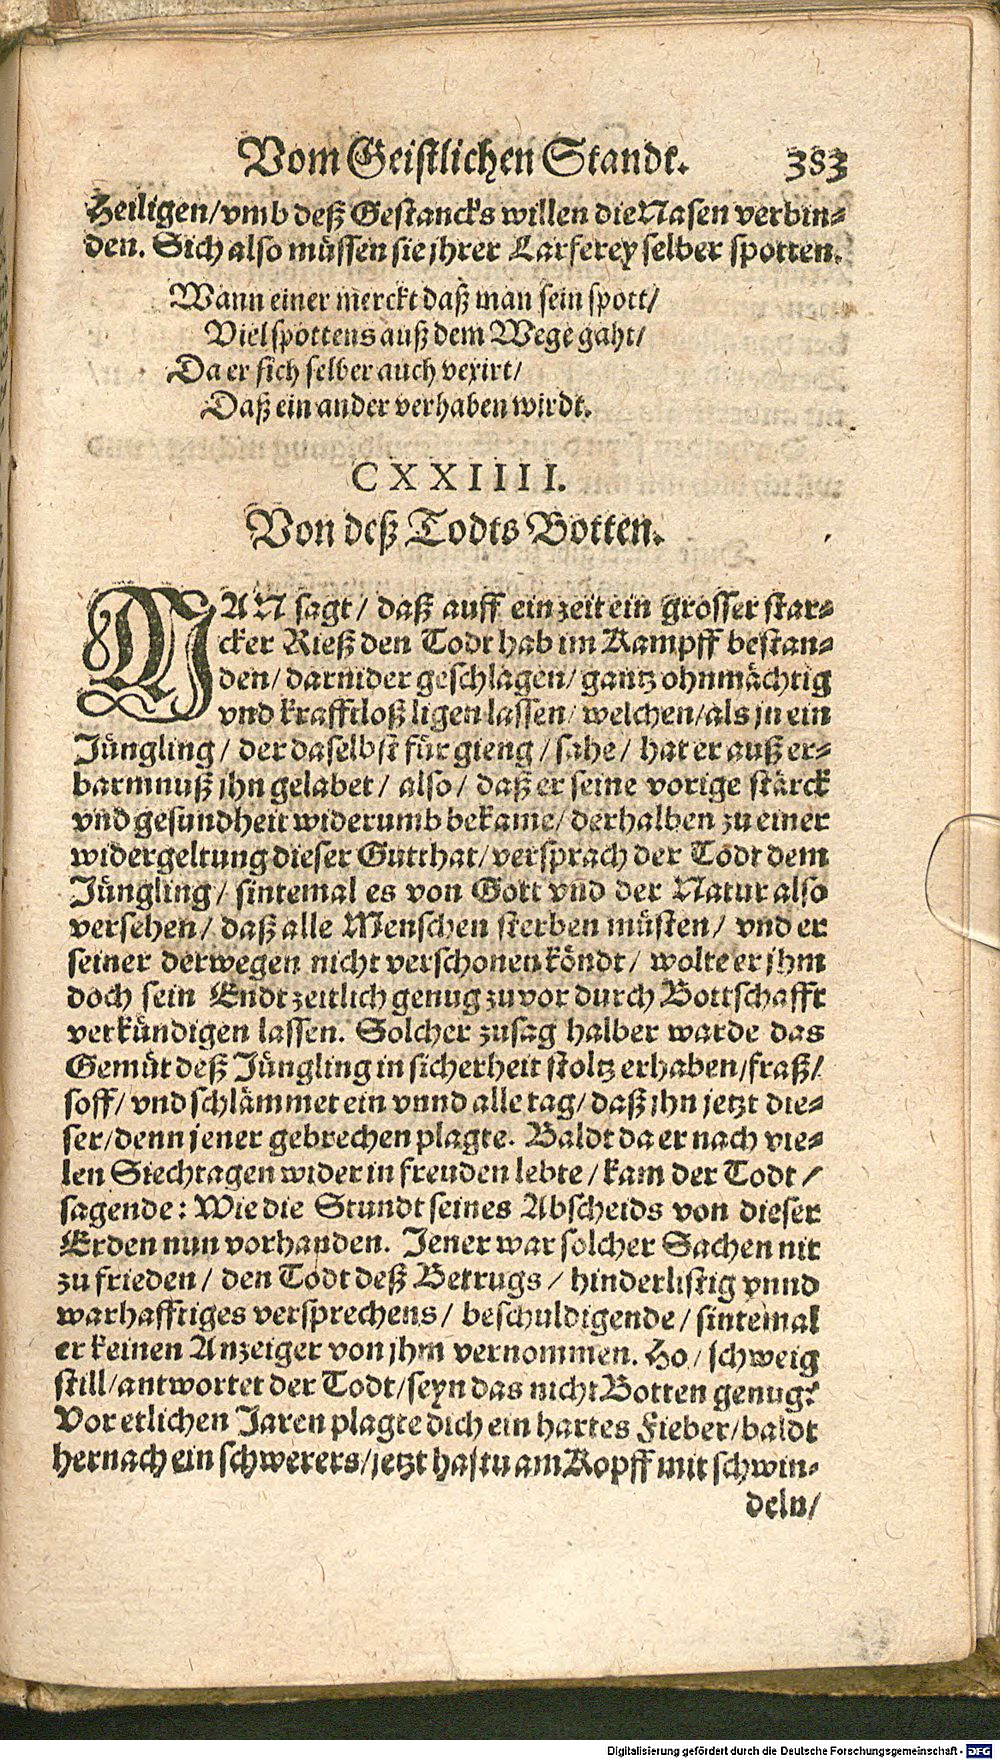 Vom Geistlichen Standt. 383
Heiligen/vmb deß Gestancks willen die Nasen verbin⸗
den. Sich also müssen sie jhrer Larferey selber spotten.
Wann einer merckt daß man sein spott/
Viel spottens auß dem Wege gaht/
Da er sich selber auch vexirt/
Daß ein ander verhaben wirdt.
CXXIIII.
Von deß Todts Botten.
MAN sagt / daß auff ein zeit ein grosser star⸗
cker Rieß den Todt hab im Kampff bestan⸗
den/ darnider geschlagen/ gantz ohnmächtig
vnd krafftloß ligen lassen/ welchen/als jn ein
Jüngling / der daselbst für gieng / sahe / hat er auß er⸗
barmnuß jhn gelabet / also / daß er seine vorige stärck
vnd gesundheit widerumb bekame/ derhalben zu einer
widergeltung dieser Gutthat/ versprach der Todt dem
Jüngling / sintemal es von Gott vnd der Natur also
versehen / daß alle Menschen sterben müsten / vnd er
seiner derwegen nicht verschonen köndt / wolte er jhm
doch sein Endt zeitlich genug zuvor durch Bottschafft
verkündigen lassen. Solcher zusag halber warde das
Gemüt deß Jüngling in sicherheit stoltz erhaben/fraß/
soff/ vnd schlämmet ein vnnd alle tag/ daß jhn jetzt die⸗
ser/denn jener gebrechen plagte. Baldt da er nach vie⸗
len Siechtagen wider in freuden lebte / kam der Todt /
sagende: Wie die Stundt seines Abscheids von dieser
Erden nun vorhanden. Jener war solcher Sachen nit
zu frieden / den Todt deß Betrugs / hinderlistig vnnd
warhafftiges versprechens / beschuldigende / sintemal
er keinen Anzeiger von jhm vernommen. Ho / schweig
still/antwortet der Todt/seyn das nicht Botten genug?
Vor etlichen Jaren plagte dich ein hartes Fieber/baldt
hernach ein schwerers/jetzt hastu am Kopff mit schwin⸗
deln/
Digitalisierung gefördert durch die Deutsche Forschungsgemeinschaft - DFG